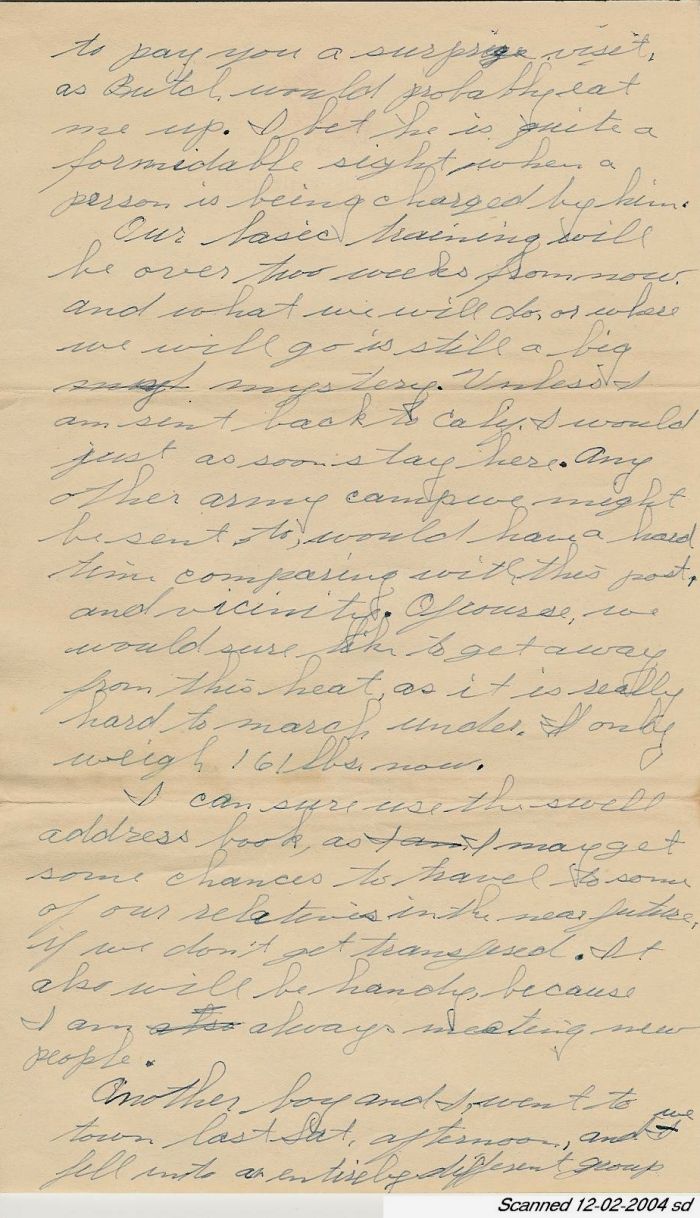 to pay you a surprise visit,
as Butch would probably eat
me up. I bet he is quite a
formidable sight, when a
person is being charged by him.
Our basic training will
be over two weeks from now.
and what we will do, or where
we will go is still a big
mystery. Unless I
am sent back to Caly. I would
just as soon stay here. Any
other army camp we might
be sent to, would have a hard
time comparing with this post,
and vicinity. Of course, we
would sure like to get away
from this heat, as it is really
hard to march under. I only
weigh 161 lbs. now.
I can sure use the swell
address book, as I am I may get
some chances to travel to some
of our relatives in the near future,
if we don't get transfered. It
also will be handy, because
I am also always meeting new
people.
Another boy and I, went to
town last Sat. afternoon, and I we
fell into an entirely different group
Scanned 12-02-2004 sd